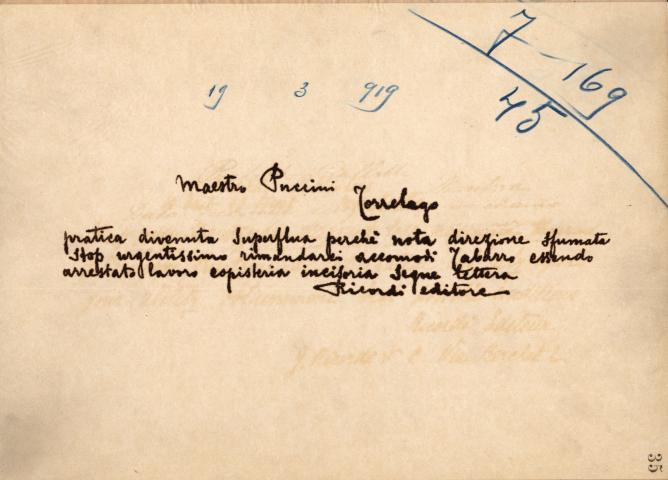 7-169
45
19 3 919
Maestro Puccini
Torrelago
pratica divenuta Superflua perchè nota direzione sfumata
Stop urgentissimo rimandarci accomodi Tabarro essendo
arrestato lavoro copisteria incisoria Segue lettera
Ricordi editore
35